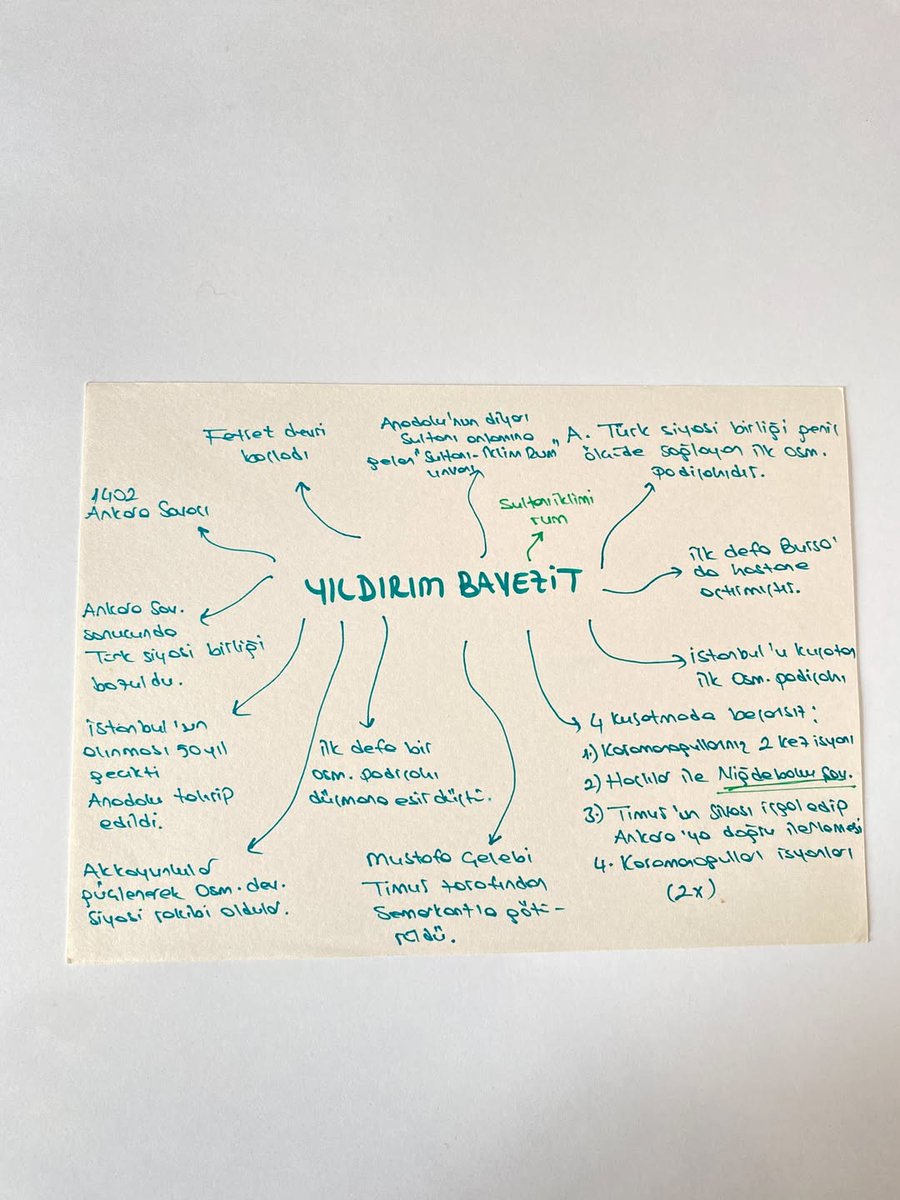 Fetret devri
başladı
Anadolu'nun diyarı
Sultanı anlamına
gelen "Sultanı-iklim Rum"
unvanı
A. Türk siyasi birliği geniş
ölçüde sağlayan ilk osm.
padişahıdır.
1402
Ankara Savaşı
Sultanıiklimi
rum
YILDIRIM BAYEZİT
ilk defa Bursa'
da hastane
açtırmıştır.
Ankara Sav.
sonucunda
Türk siyasi birliği
bozuldu.
istanbul'u kuşatan
ilk Osm. padişahı
istanbul'un
alınması 50 yıl
gecikti
Anadolu tahrip
edildi.
ilk defa bir
osm. padişahı
düşmana esir düştü.
4 kuşatmada başarısız:
1.) Karamanoğullarının 2 kez isyanı
2) Haçlılar ile Niğdebolu Sav.
3.) Timur'un Sivası işgal edip
Ankara'ya doğru ilerlemesi
4. Karamanoğulları isyanları
(2x)
Akkoyunlular
güçlenerek Osm. dev.
siyasi rakibi oldular.
Mustafa Çelebi
Timur tarafından
Semerkantla götü-
rüldü.